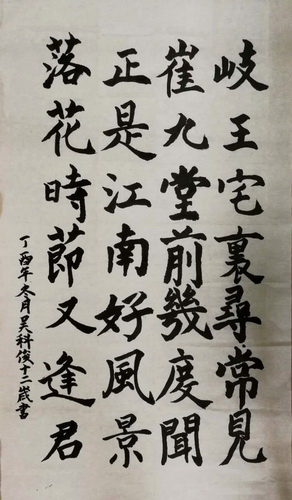 岐王宅裏尋常見
崔九堂前幾度聞
正是江南好風景
落花時節又逢君
丁酉年冬月吴科俊十二歲書